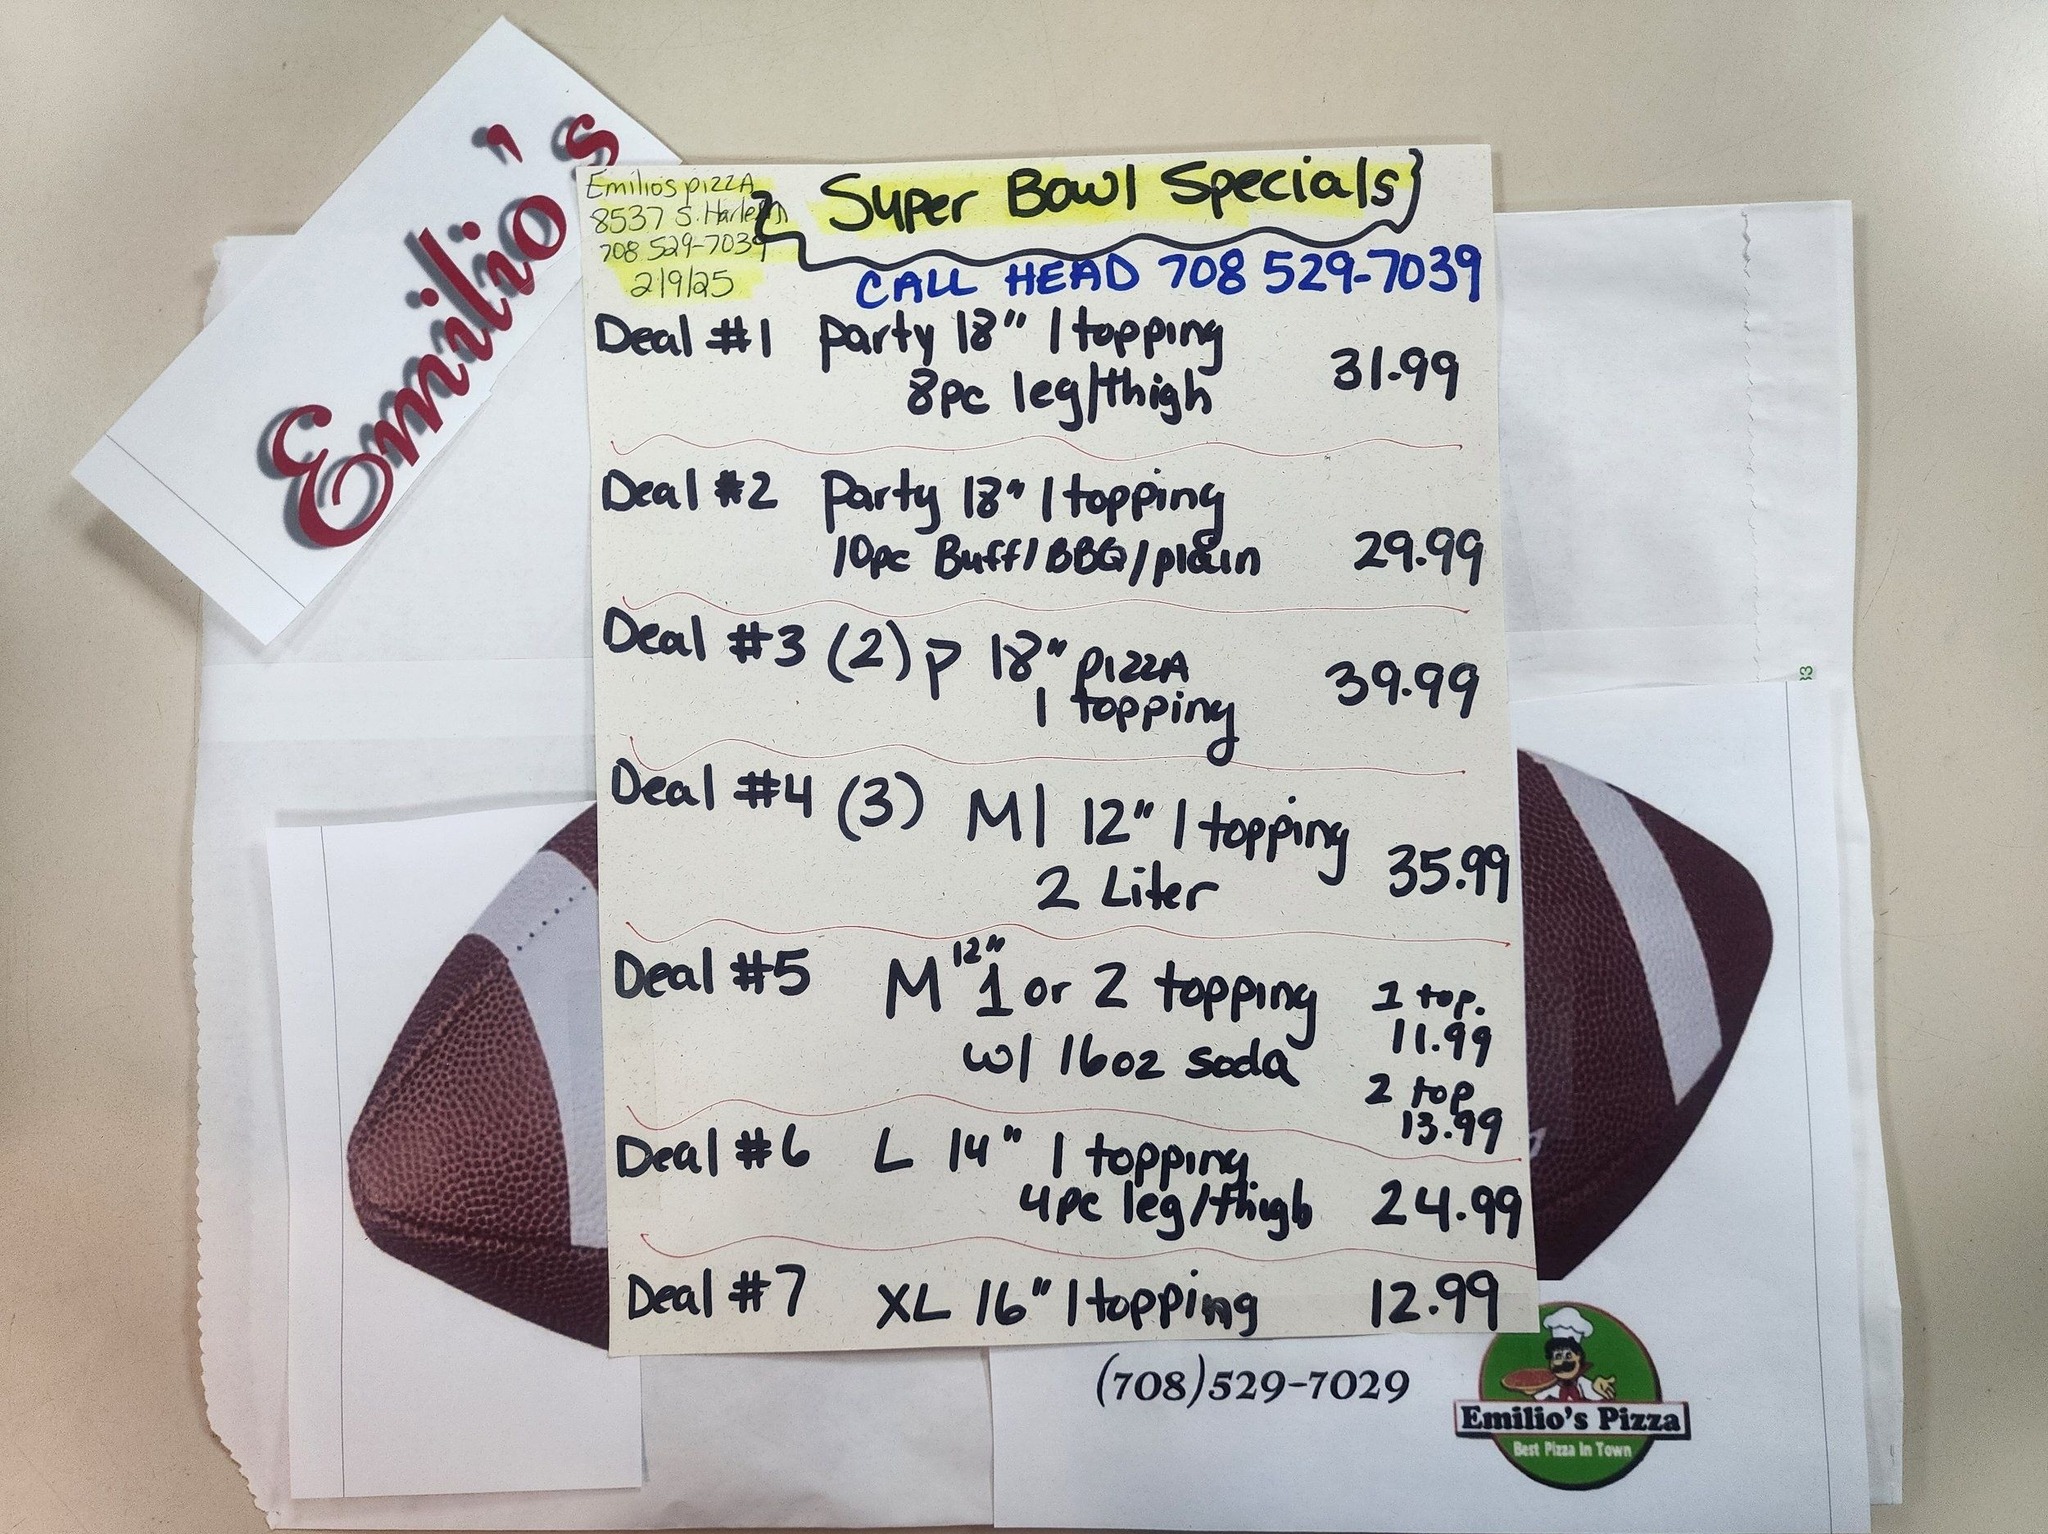 Emilio's
Emilio's pizzA
8537 S. Harlem
708 529-7039
2/9/25
Super Bowl Specials
CALL HEAD 708 529-7039
Deal #1 party 18" 1 topping
8pc leg/thigh 31.99
Deal #2 party 18" 1 topping
10pc Buff/BBQ/plain 29.99
Deal #3 (2) p 18" pizzA
1 topping 39.99
Deal #4 (3) M/ 12" 1 topping
2 Liter 35.99
Deal #5 M 12" 1 or 2 topping
w/ 16oz soda
1 top.
11.99
2 top
13.99
Deal #6 L 14" 1 topping
4pc leg/thigh 24.99
Deal #7 XL 16" 1 topping 12.99
(708)529-7029
Emilio's Pizza
Best Pizza In Town